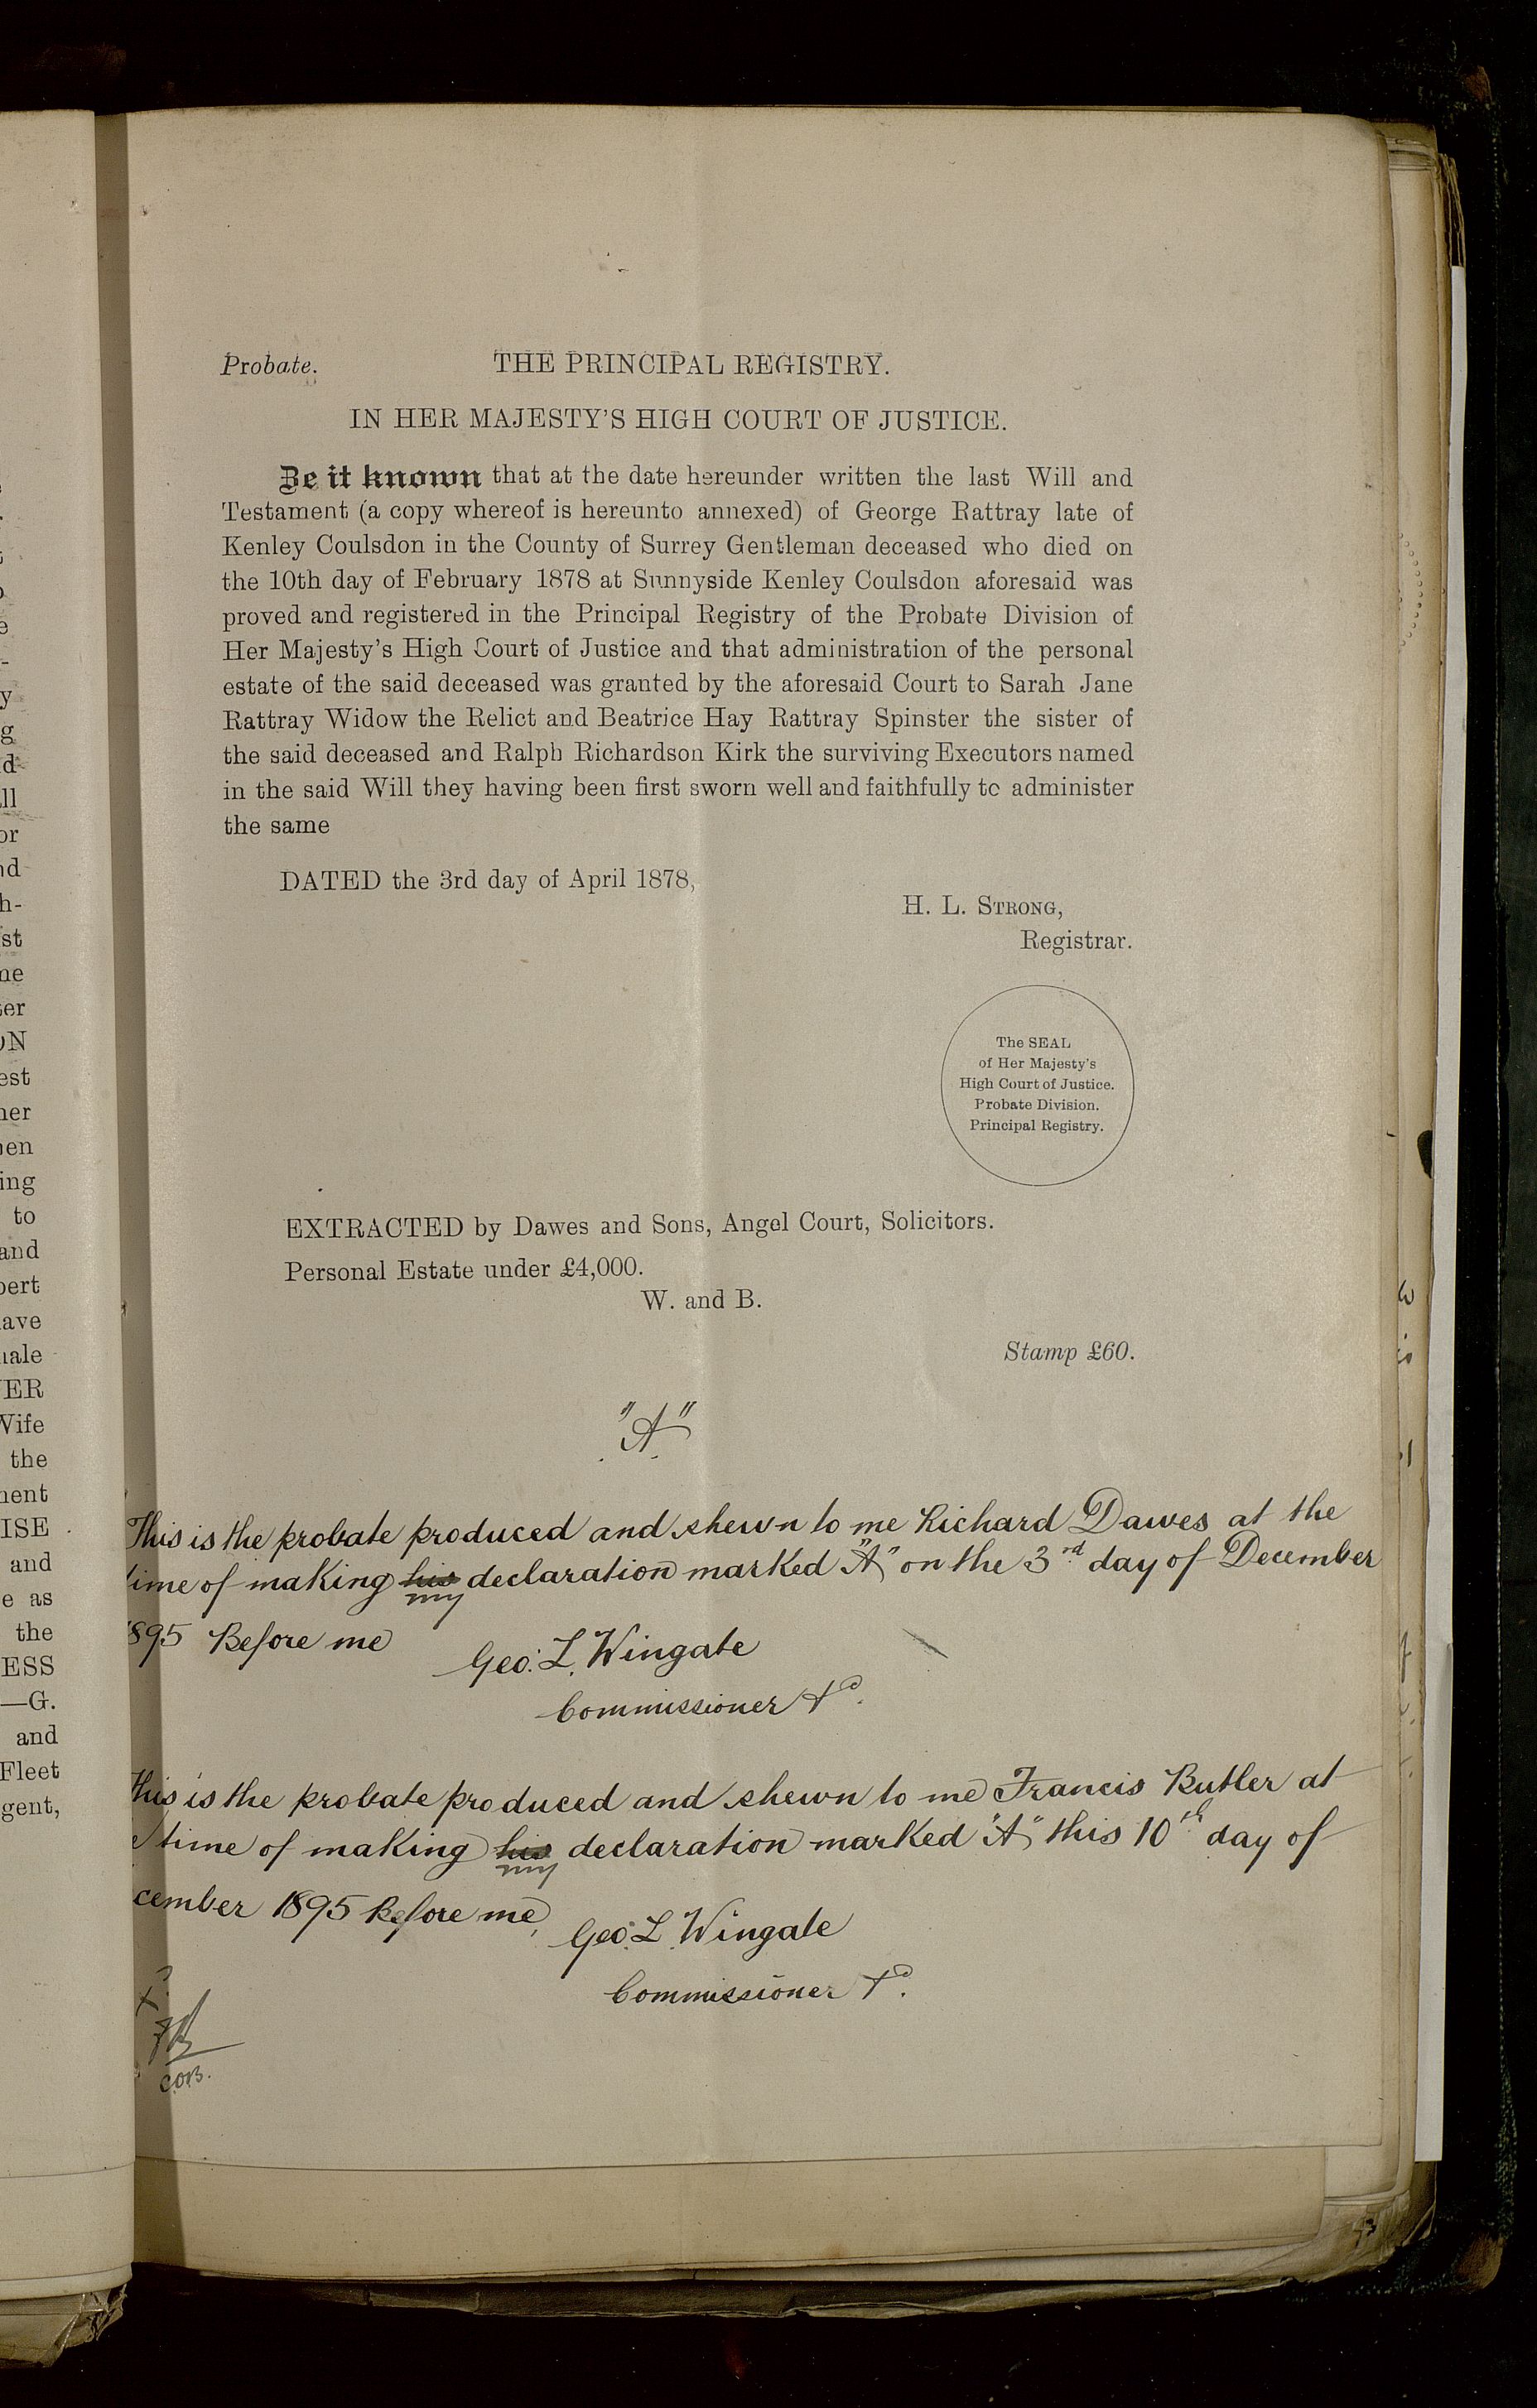 Probate. THE PRINCIPAL REGISTRY.
IN HER MAJESTY'S HIGH COURT OF JUSTICE.
Be it known that at the date hereunder written the last Will and
Testament (a copy whereof is hereunto annexed) of George Rattray late of
Kenley Coulsdon in the County of Surrey Gentleman deceased who died on
the 10th day of February 1878 at Sunnyside Kenley Coulsdon aforesaid was
proved and registered in the Principal Registry of the Probate Division of
Her Majesty's High Court of Justice and that administration of the personal
estate of the said deceased was granted by the aforesaid Court to Sarah Jane
Rattray Widow the Relict and Beatrice Hay Rattray Spinster the sister of
the said deceased and Ralph Richardson Kirk the surviving Executors named
in the said Will they having been first sworn well and faithfully to administer
the same
DATED the 3rd day of April 1878,
H. L. STRONG,
Registrar.
The SEAL
of Her Majesty's
High Court of Justice.
Probate Division.
Principal Registry.
EXTRACTED by Dawes and Sons, Angel Court, Solicitors.
Personal Estate under £4,000.
W. and B.
Stamp £60.
"A"
This is the probate produced and shewn to me Richard Dawes at the
time of making his my declaration marked "A" on the 3rd day of December
1895 Before me
Geo. L. Wingate
Commissioner &c.
This is the probate produced and shewn to me Francis Butler at
time of making his my declaration marked "A" this 10th day of
cember 1895 Before me,
Geo. L. Wingate
Commissioner &c.